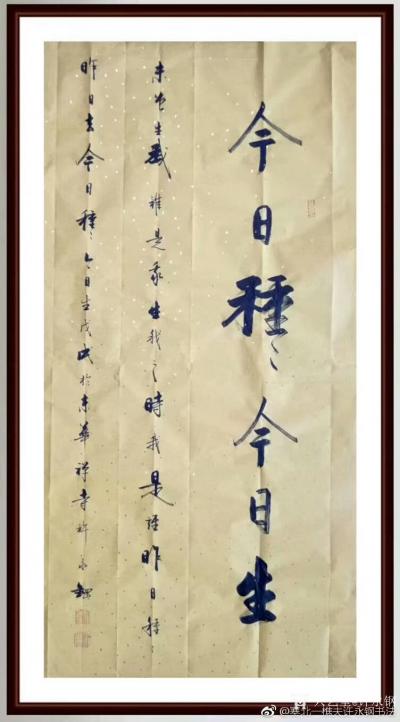 今日種〻今日生
未曾生我誰是我生我之時我是誰昨日種〻
昨日去今日種〻今日生戊戌於东華禅寺許永鋼
@塞北一樵夫许永钢书法